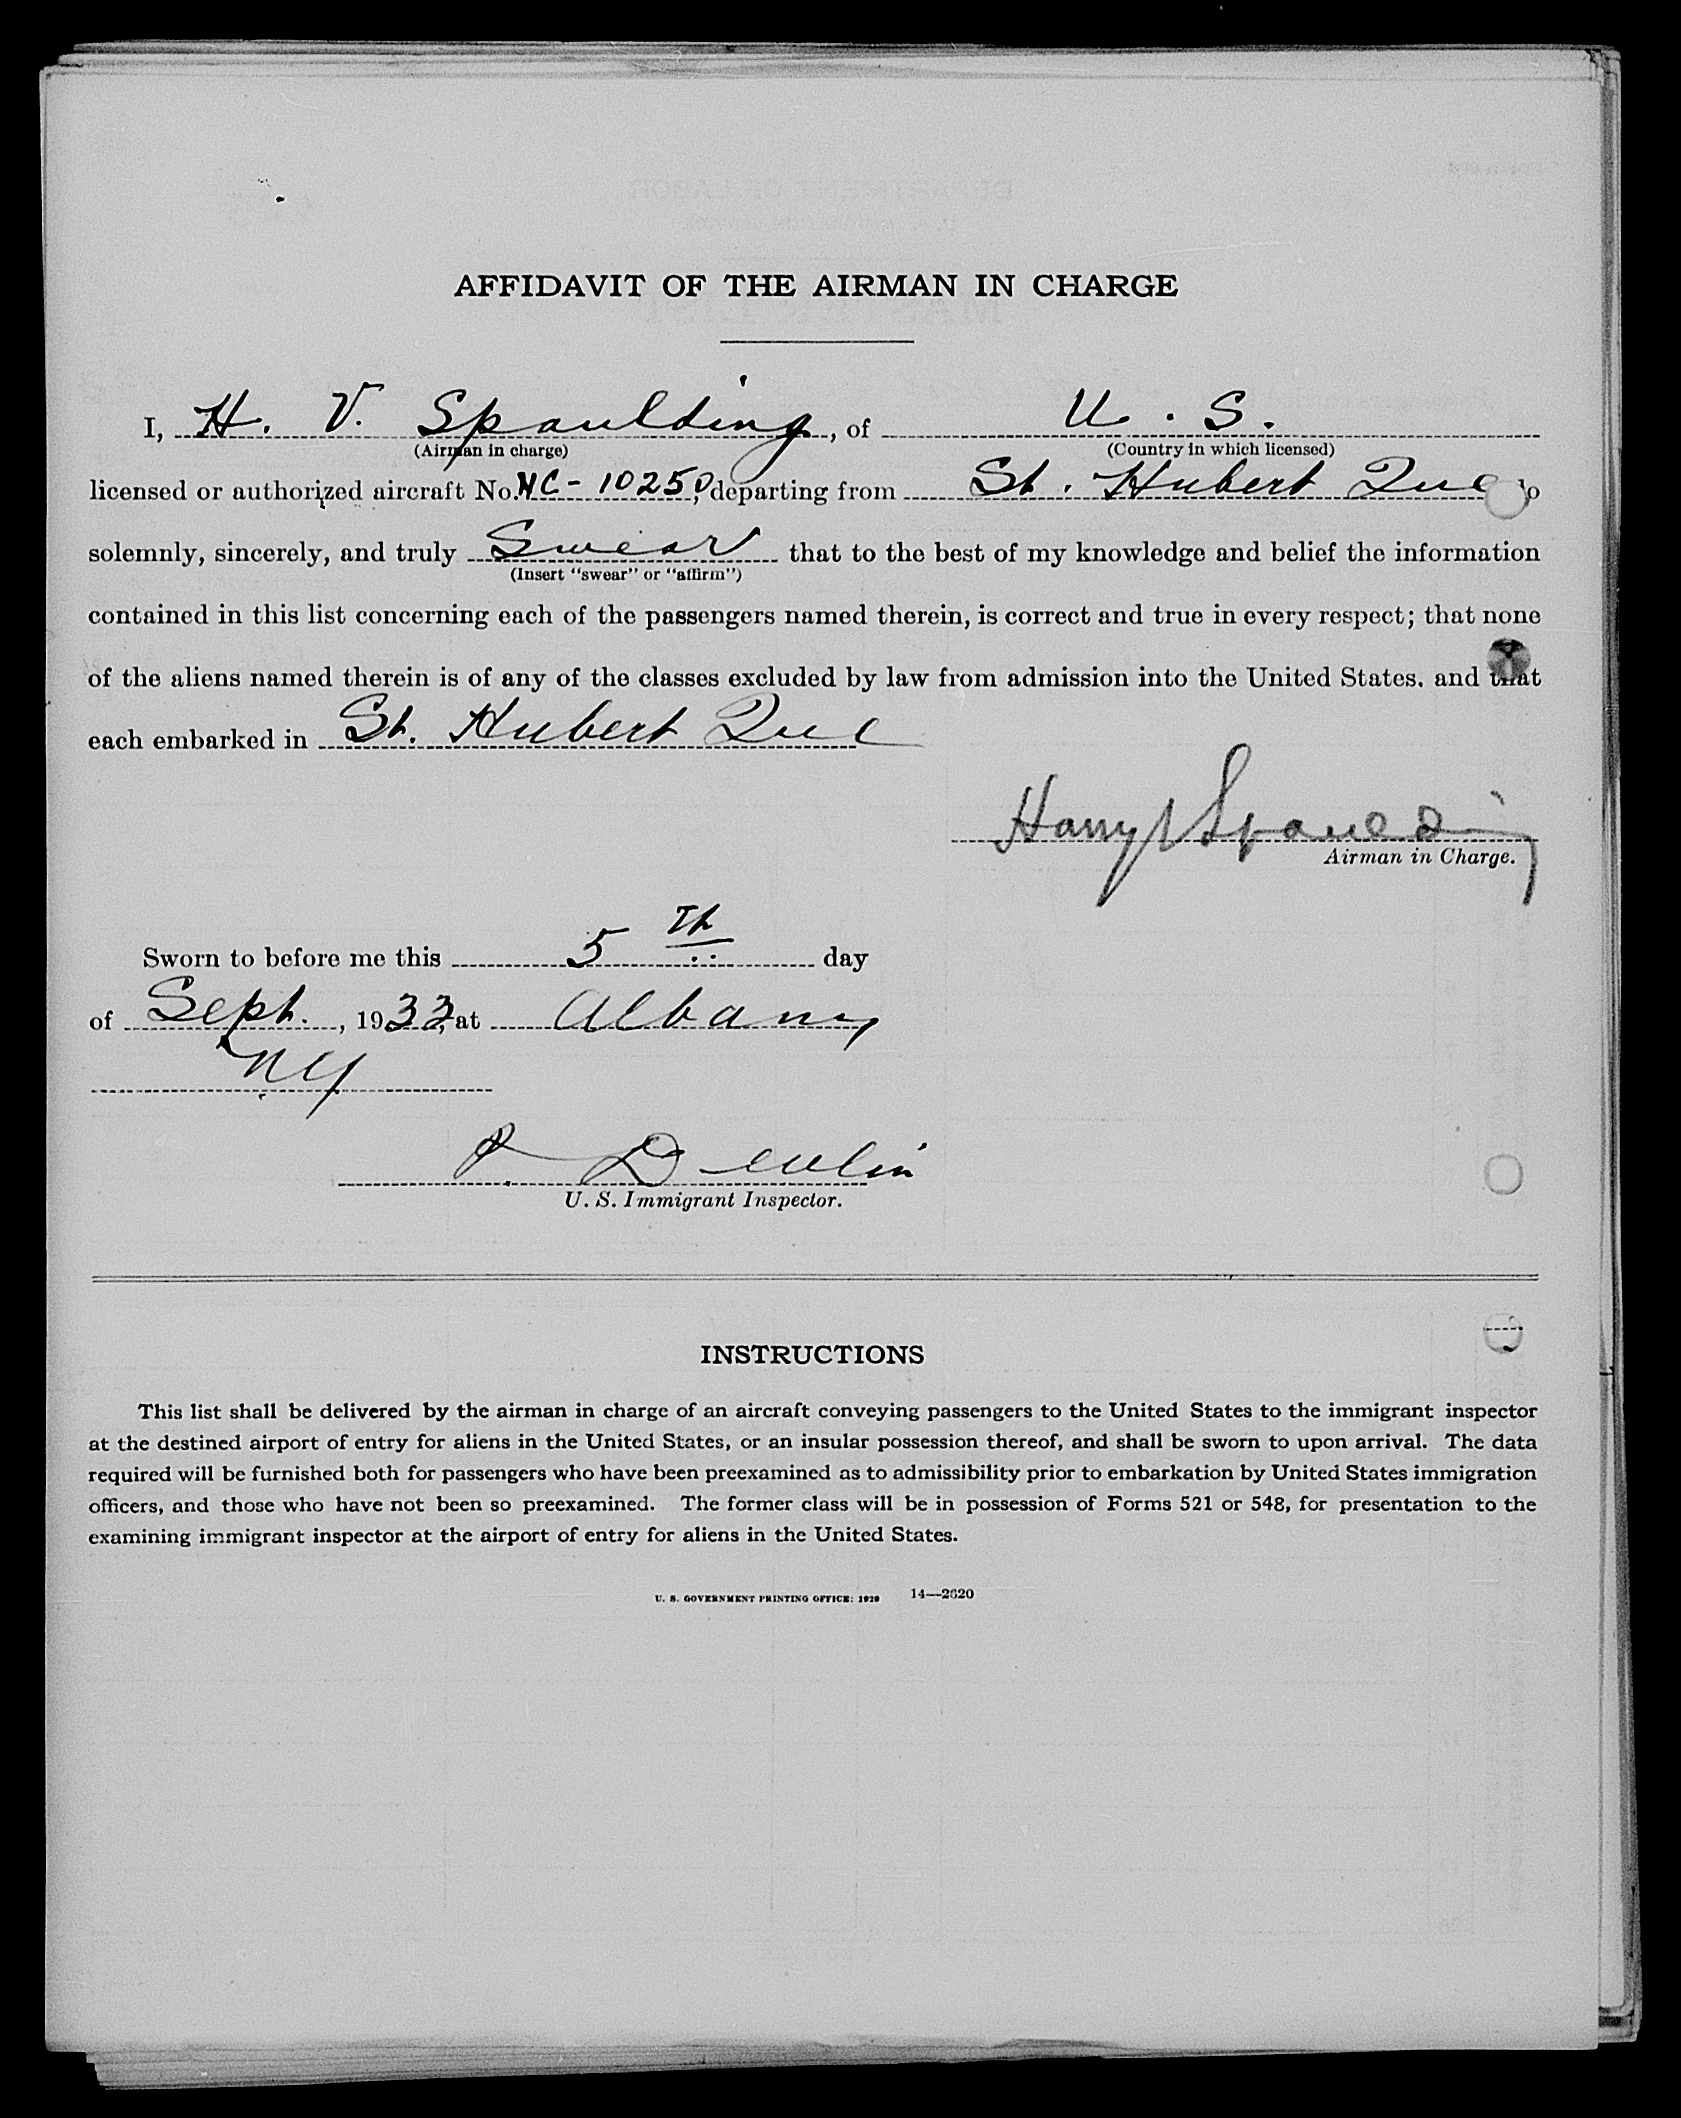 AFFIDAVIT OF THE AIRMAN IN CHARGE
I, H. V. Spaulding, of U. S.
(Airman in charge) (Country in which licensed)
licensed or authorized aircraft No. NC-10250, departing from St. Hubert Que do
solemnly, sincerely, and truly Swear that to the best of my knowledge and belief the information
(Insert "swear" or "affirm")
contained in this list concerning each of the passengers named therein, is correct and true in every respect; that none
of the aliens named therein is of any of the classes excluded by law from admission into the United States, and that
each embarked in St. Hubert Que
Harry V Spaulding
Airman in Charge.
Sworn to before me this 5 Th day
of Sept., 1933, at Albany
NY
Devlin
U. S. Immigrant Inspector.
INSTRUCTIONS
This list shall be delivered by the airman in charge of an aircraft conveying passengers to the United States to the immigrant inspector
at the destined airport of entry for aliens in the United States, or an insular possession thereof, and shall be sworn to upon arrival. The data
required will be furnished both for passengers who have been preexamined as to admissibility prior to embarkation by United States immigration
officers, and those who have not been so preexamined. The former class will be in possession of Forms 521 or 548, for presentation to the
examining immigrant inspector at the airport of entry for aliens in the United States.
U. S. GOVERNMENT PRINTING OFFICE: 1929 14—2620